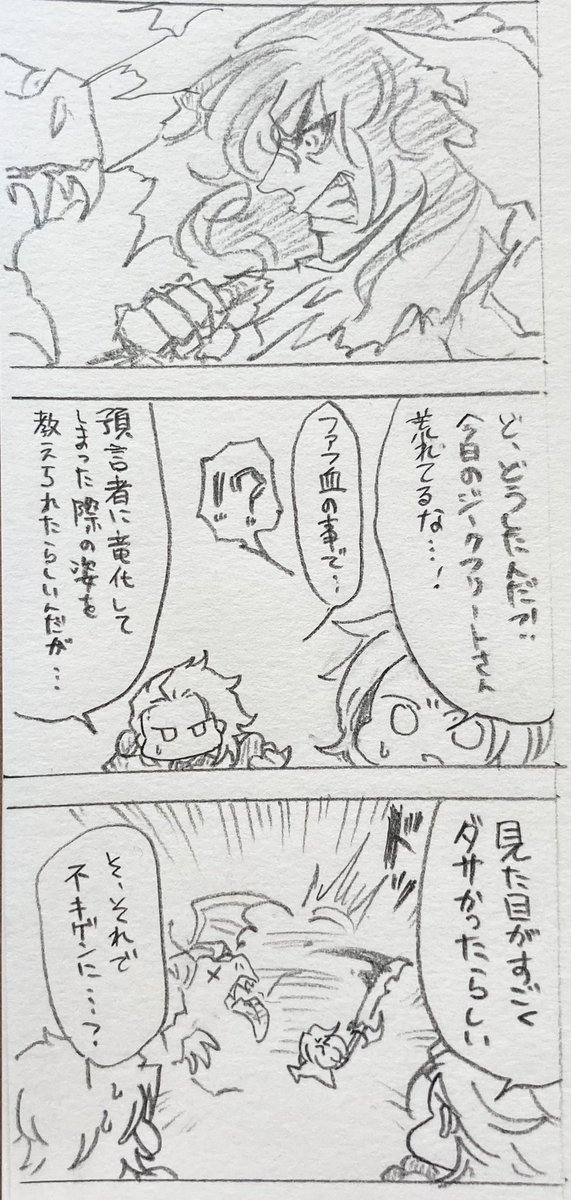 ど、どうしたんだ?!
今日のジークフリートさん
荒れてるな…!
ファフ血の事で…
!?
預言者に竜化して
しまった際の姿を
教えられたらしいんだが…
見た目がすごく
ダサかったらしい
ドッ
そ、それで
不キゲンに…?